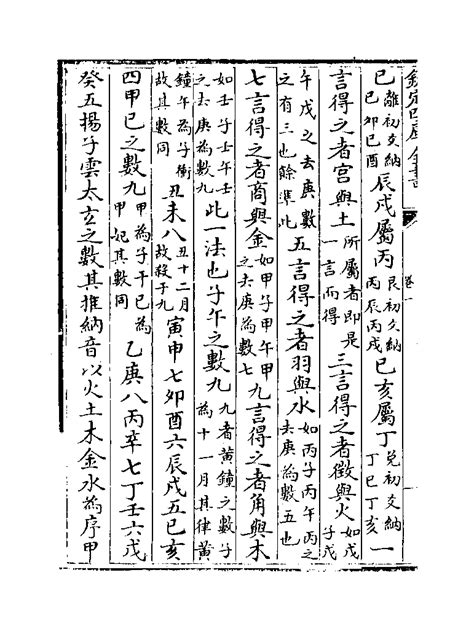 欽定四庫全書 卷一
已離初爻納已卯已酉辰戌屬丙艮初爻納丙辰丙戌已亥屬丁兌初爻納丁巳丁亥一
言得之者宫與土所屬者即是一言而得三言得之者徵與火如戊子戊
午戊之去庚數之有三也餘準此五言得之者羽與水如丙子丙午丙之去庚為數五也
七言得之者商與金如甲子甲午甲之去庚為數七九言得之者角與木
如壬子壬午壬之去庚為數九此一法也子午之數九九者黄鐘之數子為十一月其律黄
鐘午為子衝故其數同丑未八丑十二月故殺于九寅申七卯酉六辰戌五已亥
四甲已之數九甲為子干已為甲妃其數同乙庚八丙辛七丁壬六戊
癸五揚子雲太玄之數其推納音以火土木金水為序甲